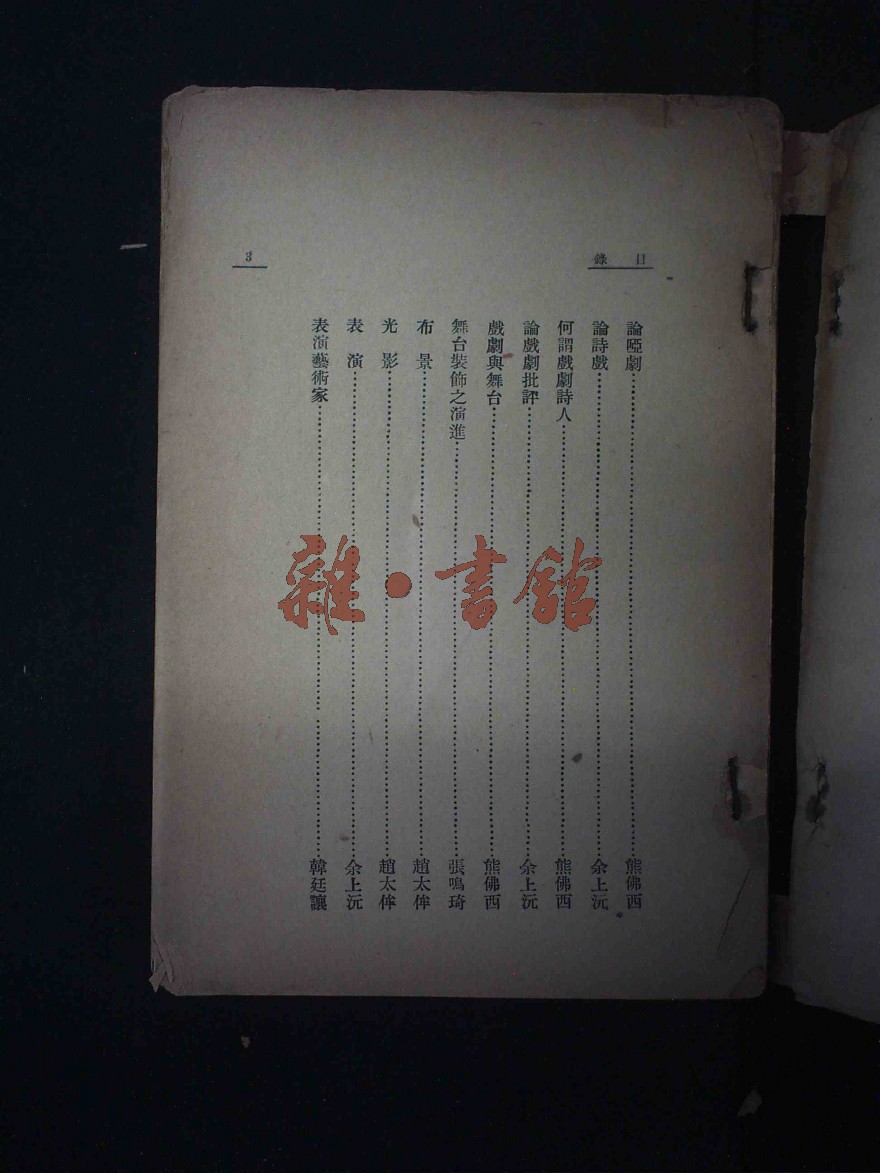 目錄
3
論啞劇……熊佛西
論詩戲……余上沅
何謂戲劇詩人……熊佛西
論戲劇批評……余上沅
戲劇與舞台……熊佛西
舞台裝飾之演進……張鳴琦
布景……趙太侔
光影……趙太侔
表演……余上沅
表演藝術家……韓廷讓
雜·書館